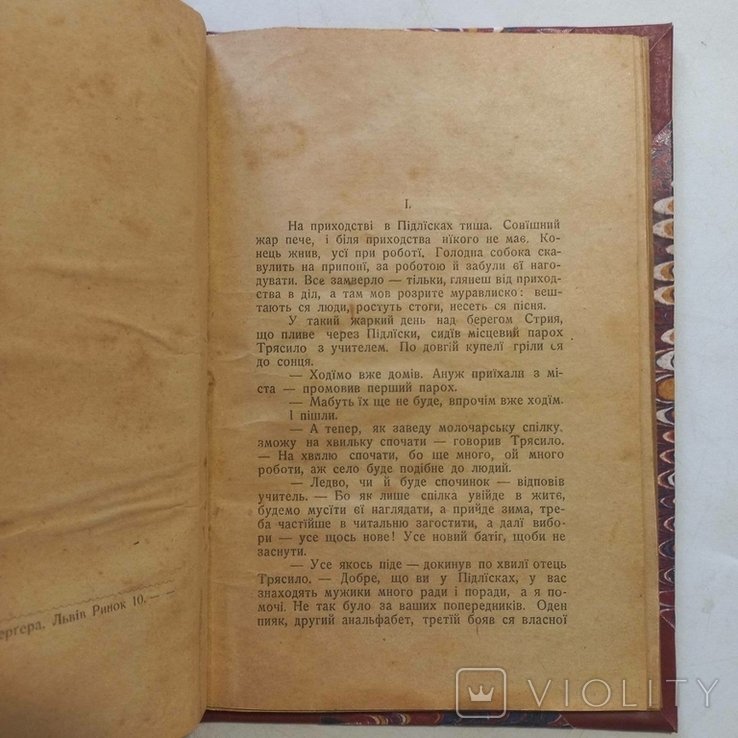 І.
На приходстві в Підлїсках тиша. Совїшний
жар пече, і біля приходства нїкого не має. Ко-
нець жнив, усї при роботї. Голодна собока ска-
вулить на припонї, за роботою й забули єї наго-
дувати. Все замерло — тільки, глянеш від приход-
ства в дїл, а там мов розрите муравлиско: веш-
тають ся люди, ростуть стоги, несеть ся пісня.
У такий жаркий день над берегом Стрия,
що пливе через Підлїски, сидїв місцевий парох
Трясило з учителем. По довгій купелї грілись
до сонця.
— Ходїмо вже домів. Ануж приїхали з мі-
ста — промовив перший парох.
— Мабуть їх ще не буде, впрочім вже ходїм.
І пішли.
— А тепер, як заведу молочарську спілку,
зможу на хвильку спочати — говорив Трясило.
— На хвилю спочати, бо ще много, ой много
роботи, аж село буде подібне до людий.
— Ледво, чи й буде спочинок — відповів
учитель. — Бо як лише спілка увійде в житє,
будемо мусїти єї наглядати, а прийде зима, тре-
ба частїйше в читальню загостити, а далї вибо-
ри — усе щось нове! Усе новий батіг, щоби не
заснути.
— Усе якось піде — докинув по хвилї отець
Трясило. — Добре, що ви у Підлїсках, у вас
знаходять мужики много ради і поради, а я по-
мочі. Не так було за ваших попередників. Оден
пияк, другий анальфабет, третїй бояв ся власної
ерґера, Львів Ринок 10. — —
VIOLITY